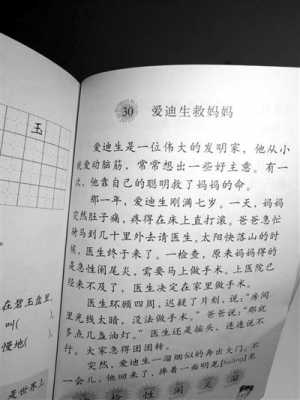 玉
在碧玉盘里
叫(
慢地(
是世界上
30 爱迪生救妈妈
爱迪生是一位伟大的发明家，他从小
就爱动脑筋，常常想出一些好主意。有一
次，他靠自己的聪明救了妈妈的命。
那一年，爱迪生刚满七岁。一天，妈妈
突然肚子痛，疼得在床上直打滚。爸爸急忙
骑马到几十里外去请医生。太阳快落山的时
候，医生终于来了。一检查，原来妈妈得的
是急性阑尾炎，需要马上做手术。上医院已
经来不及了，医生决定在家里做手术。
医生环顾四周，迟疑了片刻，说：“房间
里光线太暗，没法做手术。”爸爸说：“那就
多点几盏油灯。”医生还是摇头，连连说不
行。大家急得团团转。
突然，爱迪生一溜烟似的奔出大门。不
一会儿，他回来了，捧着一面明晃
性 阑